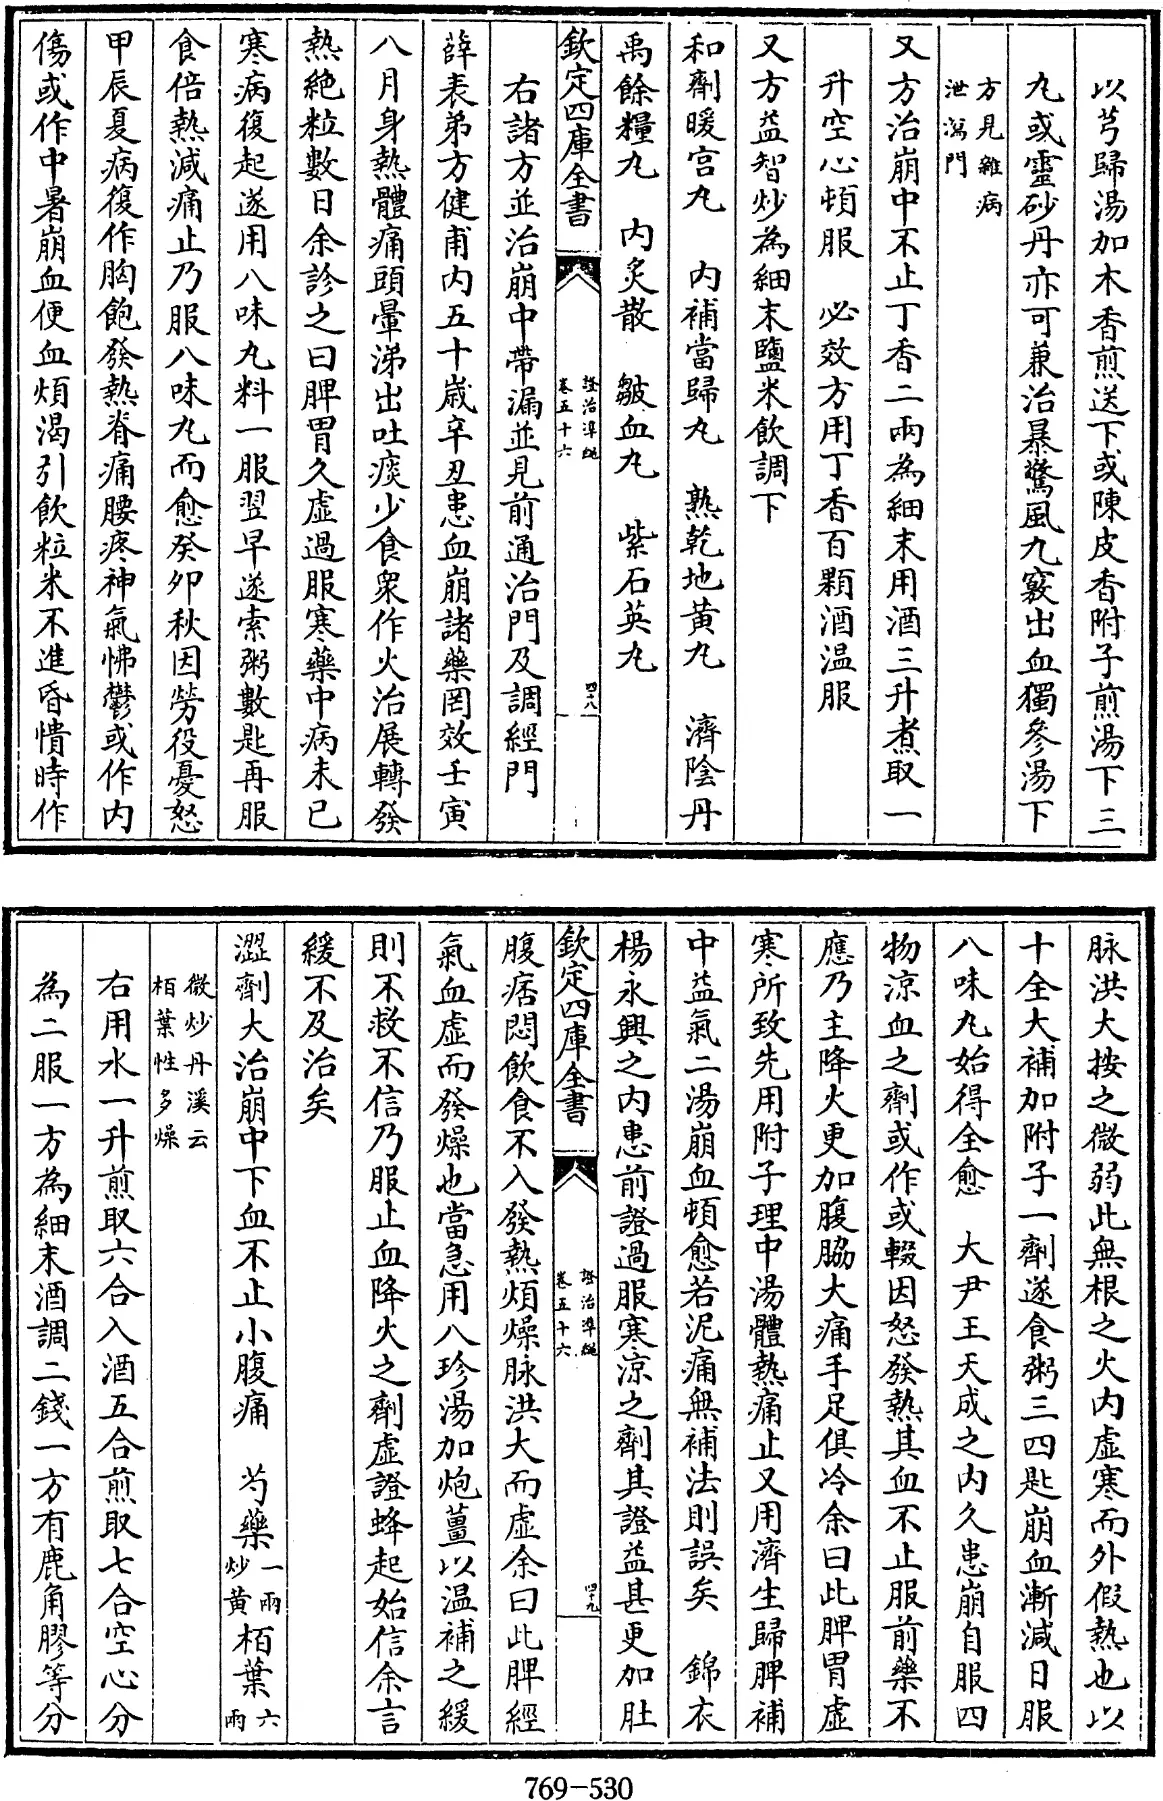 以芎歸湯加木香煎送下或陳皮香附子煎湯下三
九或靈砂丹亦可兼治暴驚風九竅出血獨參湯下
方見雜病
泄瀉門
又方治崩中不止丁香二兩為細末用酒三升煮取一
升空心頓服　必效方用丁香百顆酒温服
又方益智炒為細末鹽米飲調下
和劑暖宫丸　内補當歸丸　熟乾地黄丸　濟陰丹
禹餘糧丸　内炙散　皺血丸　紫石英丸
欽定四庫全書
證治準繩
卷五十六
四十八
右諸方並治崩中帶漏並見前通治門及調經門
薛表弟方健甫内五十歳辛丑患血崩諸藥罔效壬寅
八月身熱體痛頭暈涕出吐痰少食衆作火治展轉發
熱絶粒數日余診之曰脾胃久虛過服寒藥中病未已
寒病復起遂用八味丸料一服翌早遂索粥數匙再服
食倍熱減痛止乃服八味丸而愈癸卯秋因勞役憂怒
甲辰夏病復作胸飽發熱脊痛腰疼神氣怫鬱或作内
傷或作中暑崩血便血煩渴引飲粒米不進昏憒時作
脉洪大按之微弱此無根之火内虛寒而外假熱也以
十全大補加附子一劑遂食粥三四匙崩血漸減日服
八味丸始得全愈　大尹王天成之内久患崩自服四
物涼血之劑或作或輟因怒發熱其血不止服前藥不
應乃主降火更加腹脇大痛手足俱冷余曰此脾胃虛
寒所致先用附子理中湯體熱痛止又用濟生歸脾補
中益氣二湯崩血頓愈若泥痛無補法則誤矣　錦衣
楊永興之内患前證過服寒涼之劑其證益甚更加肚
欽定四庫全書
證治準繩
卷五十六
四十九
腹痞悶飲食不入發熱煩燥脉洪大而虛余曰此脾經
氣血虛而發燥也當急用八珍湯加炮薑以温補之緩
則不救不信乃服止血降火之劑虛證蜂起始信余言
緩不及治矣
澀劑大治崩中下血不止小腹痛　芍藥一兩炒黄栢葉六兩
微炒丹溪云
栢葉性多燥
右用水一升煎取六合入酒五合煎取七合空心分
為二服一方為細末酒調二錢一方有鹿角膠等分
769-530